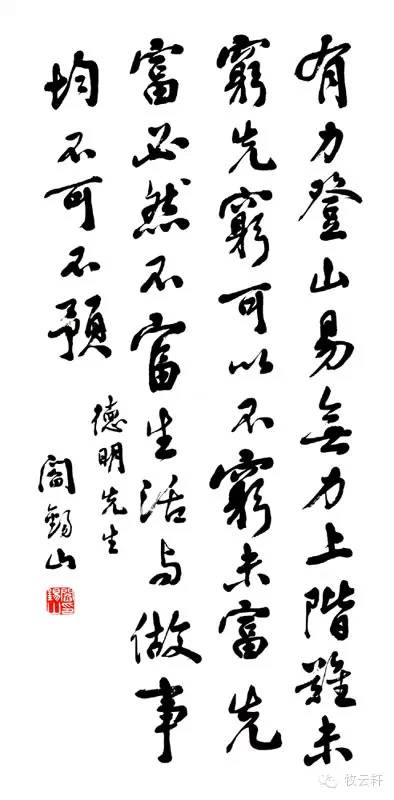 有力登山易無力上階難未
窮先窮可以不窮未富先
富必然不富生活与做事
均不可不預
德明先生
閻錫山
閻錫山印
牧云轩